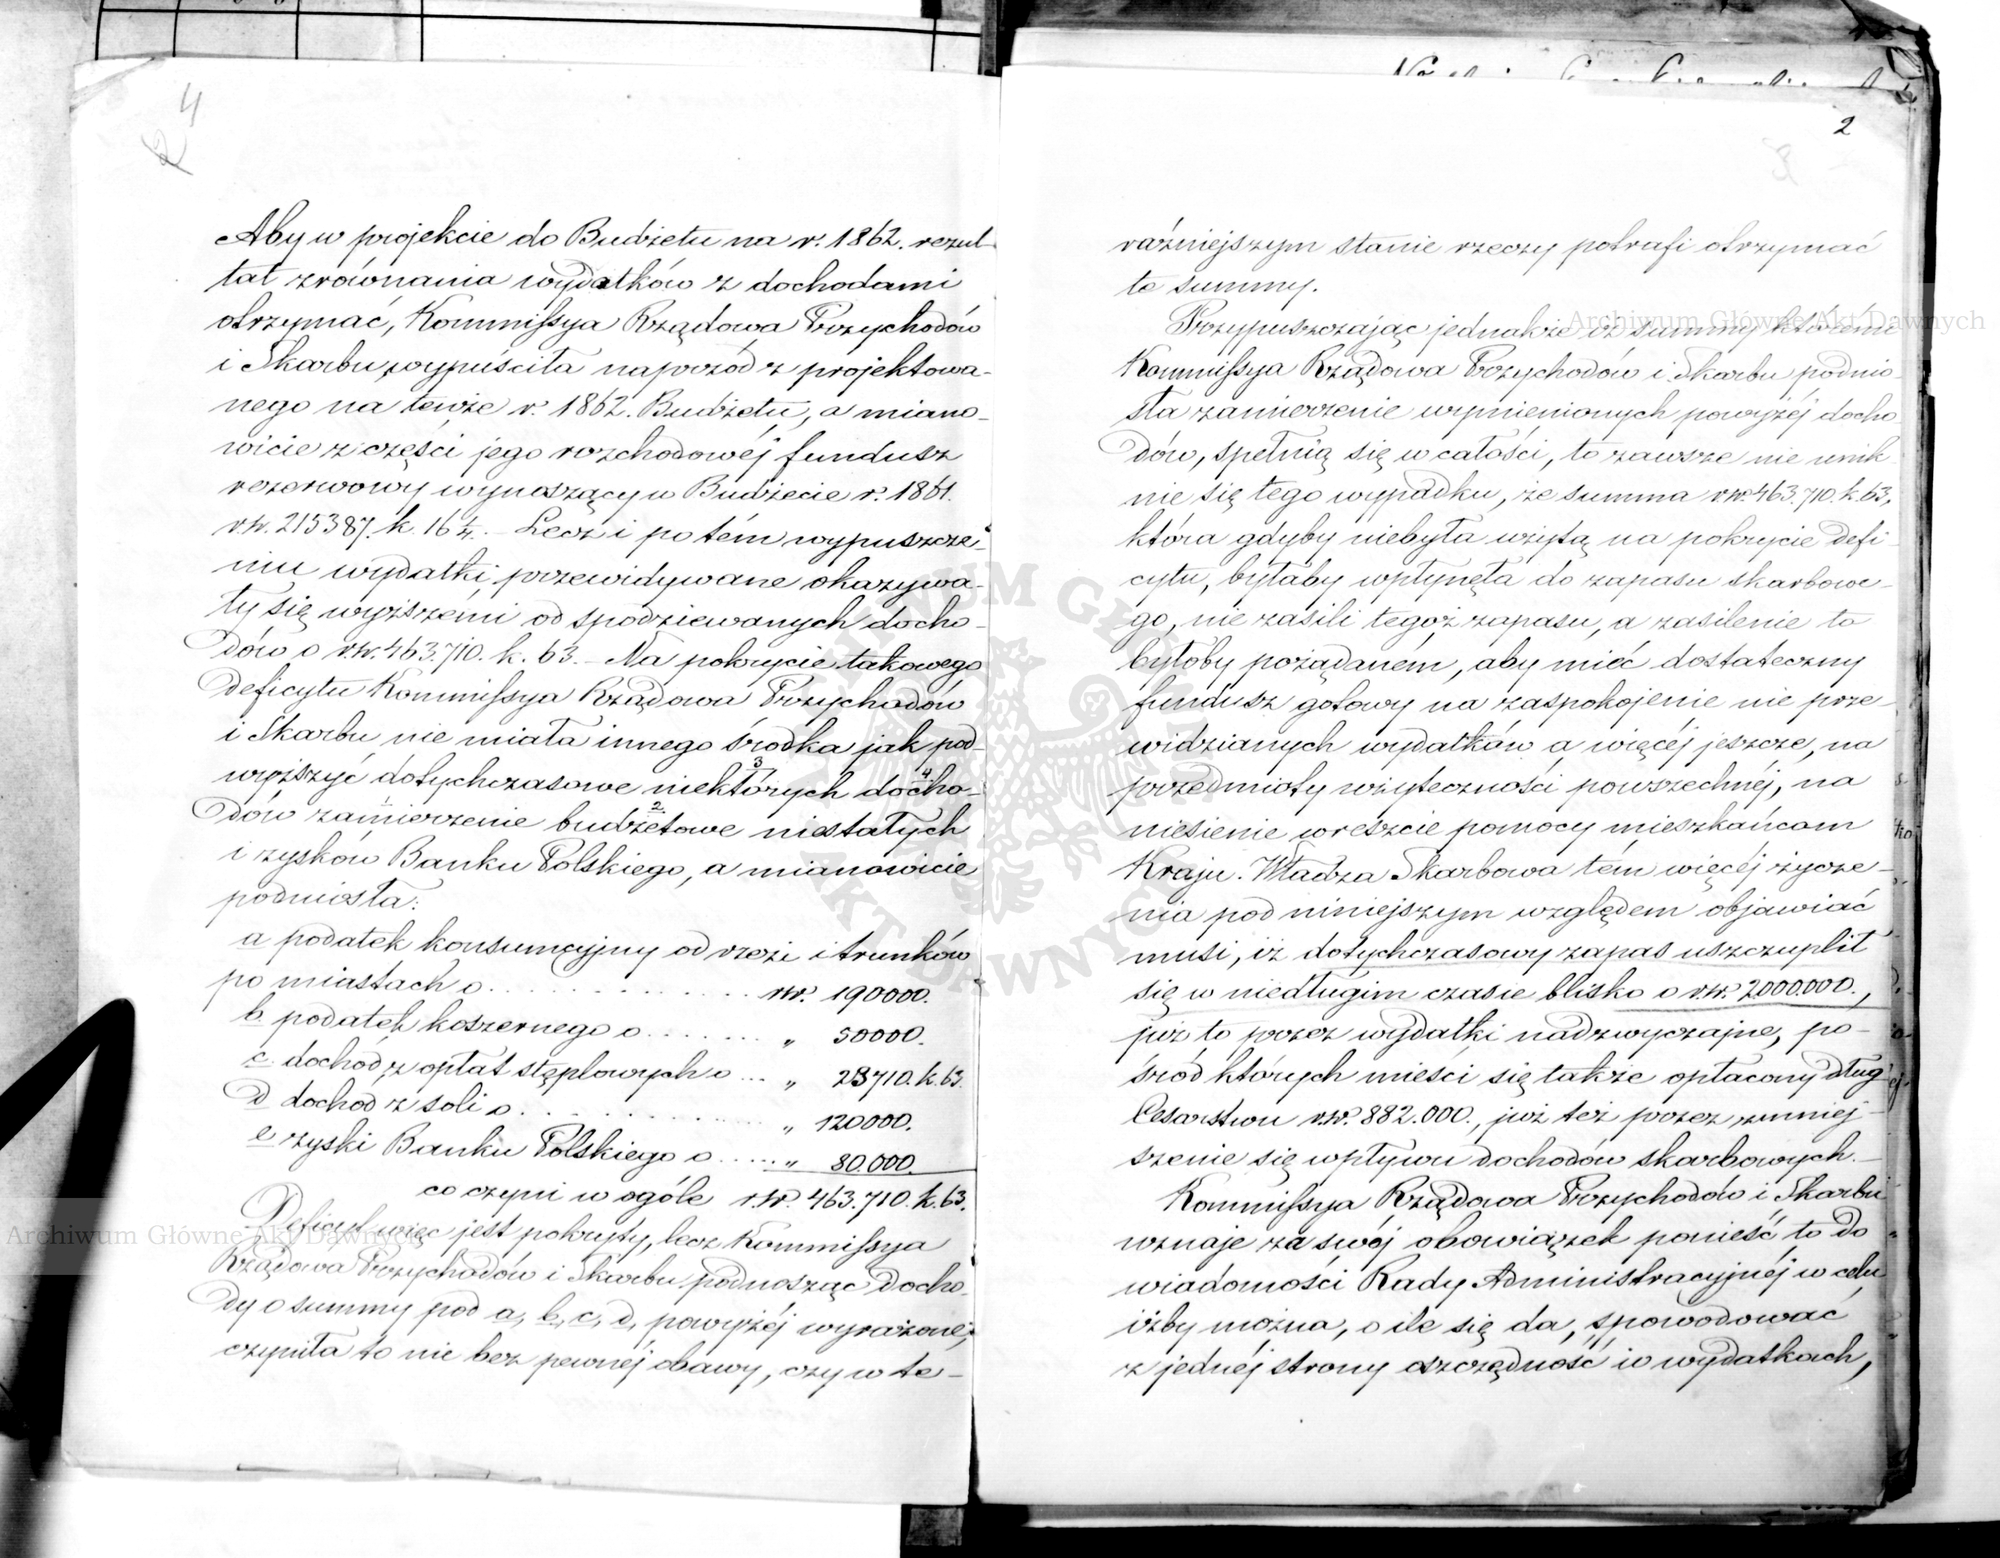 4
2
Aby w projekcie do Budżetu na r. 1862. rezul-
tat zrównania wydatków z dochodami
otrzymać, Kommissya Rządowa Przychodów
i Skarbu, wypuściła naprzód z projektowa-
nego na tenże r. 1862. Budżetu, a miano-
wicie z części jego rozchodowéj fundusz
rezerwowy wynoszący w Budżecie r. 1861.
rsr. 215387. k. 16 1/4. – Lecz i po tém wypuszcze-
niu wydatki, przewidywane okazywa-
ły się wyższemi od spodziewanych docho-
dów o rsr. 463.710. k. 63. – Na pokrycie takowego
deficytu Kommissya Rządowa Przychodów
i Skarbu nie miała innego środka jak pod-
wyższyć dotychczasowe niektórych 3 docho- 4
dów zamierzenie budżetowe 2 niestałych
i zysków Banku Polskiego, a mianowicie
podniosła:
a podatek konsumcyjny od rzezi i trunków
po miastach o . . . . . . . . . . rsr. 190000.
b. podatek koszernego o . . . . . . . „ 50000.
c. dochód z opłat stęplowych o . . . „ 23710. k. 63.
d dochód z soli o . . . . . . . . . „ 120000.
e zyski Banku Polskiego o . . . . . „ 80.000.
co czyni w ogóle rsr. 463.710. k. 63.
Deficyt więc jest pokryty, lecz Kommissya
Rządowa Przychodów i Skarbu podnosząc docho-
dy o summy pod a, b, c, d, powyżéj wyrażone,
czyniła to nie bez pewnéj obawy, czy w te-
2
raźniejszym stanie rzeczy potrafi otrzymać
te summy.
Przypuszczając jednakże iż summy któremi
Kommissya Rządowa Przychodów i Skarbu podnio-
sła zamierzenie wymienionych powyżéj docho-
dów, spełnią się w całości, to zawsze nie unik-
nie się tego wypadku, że summa rsr. 463.710. k. 63,
która gdyby niebyła użytą na pokrycie defi-
cytu, byłaby wpłynęła do zapasu skarbowe-
go, nie zasili tegoż zapasu, a zasilenie to
byłoby pożądaném, aby mieć dostateczny
fundusz gotowy na zaspokojenie nie prze-
widzianych wydatków, a więcéj jeszcze, na
przedmioty użyteczności powszechnéj, na
niesienie wreszcie pomocy mieszkańcom
Kraju. Władza Skarbowa tém więcéj życze-
nia pod niniejszym względem objawiać
musi, iż dotychczasowy zapas uszczuplił
się w niedługim czasie blisko o rsr. 2000.000.,
już to przez wydatki nadzwyczajne, po-
śród których mieści się także opłacony dług
Cesarstwu rsr. 882.000., już też przez zmniej-
szenie się wpływu dochodów skarbowych. –
Kommissya Rządowa Przychodów i Skarbu
uznaje za swój obowiązek ponieść to do
wiadomości Rady Administracyjnéj w celu
iżby można, o ile się da, spowodować
z jednéj strony oszczędność w wydatkach,
Archiwum Główne Akt Dawnych
Archiwum Główne Akt Dawnych
ARCHIWUM GŁÓWNE
AKT DAWNYCH